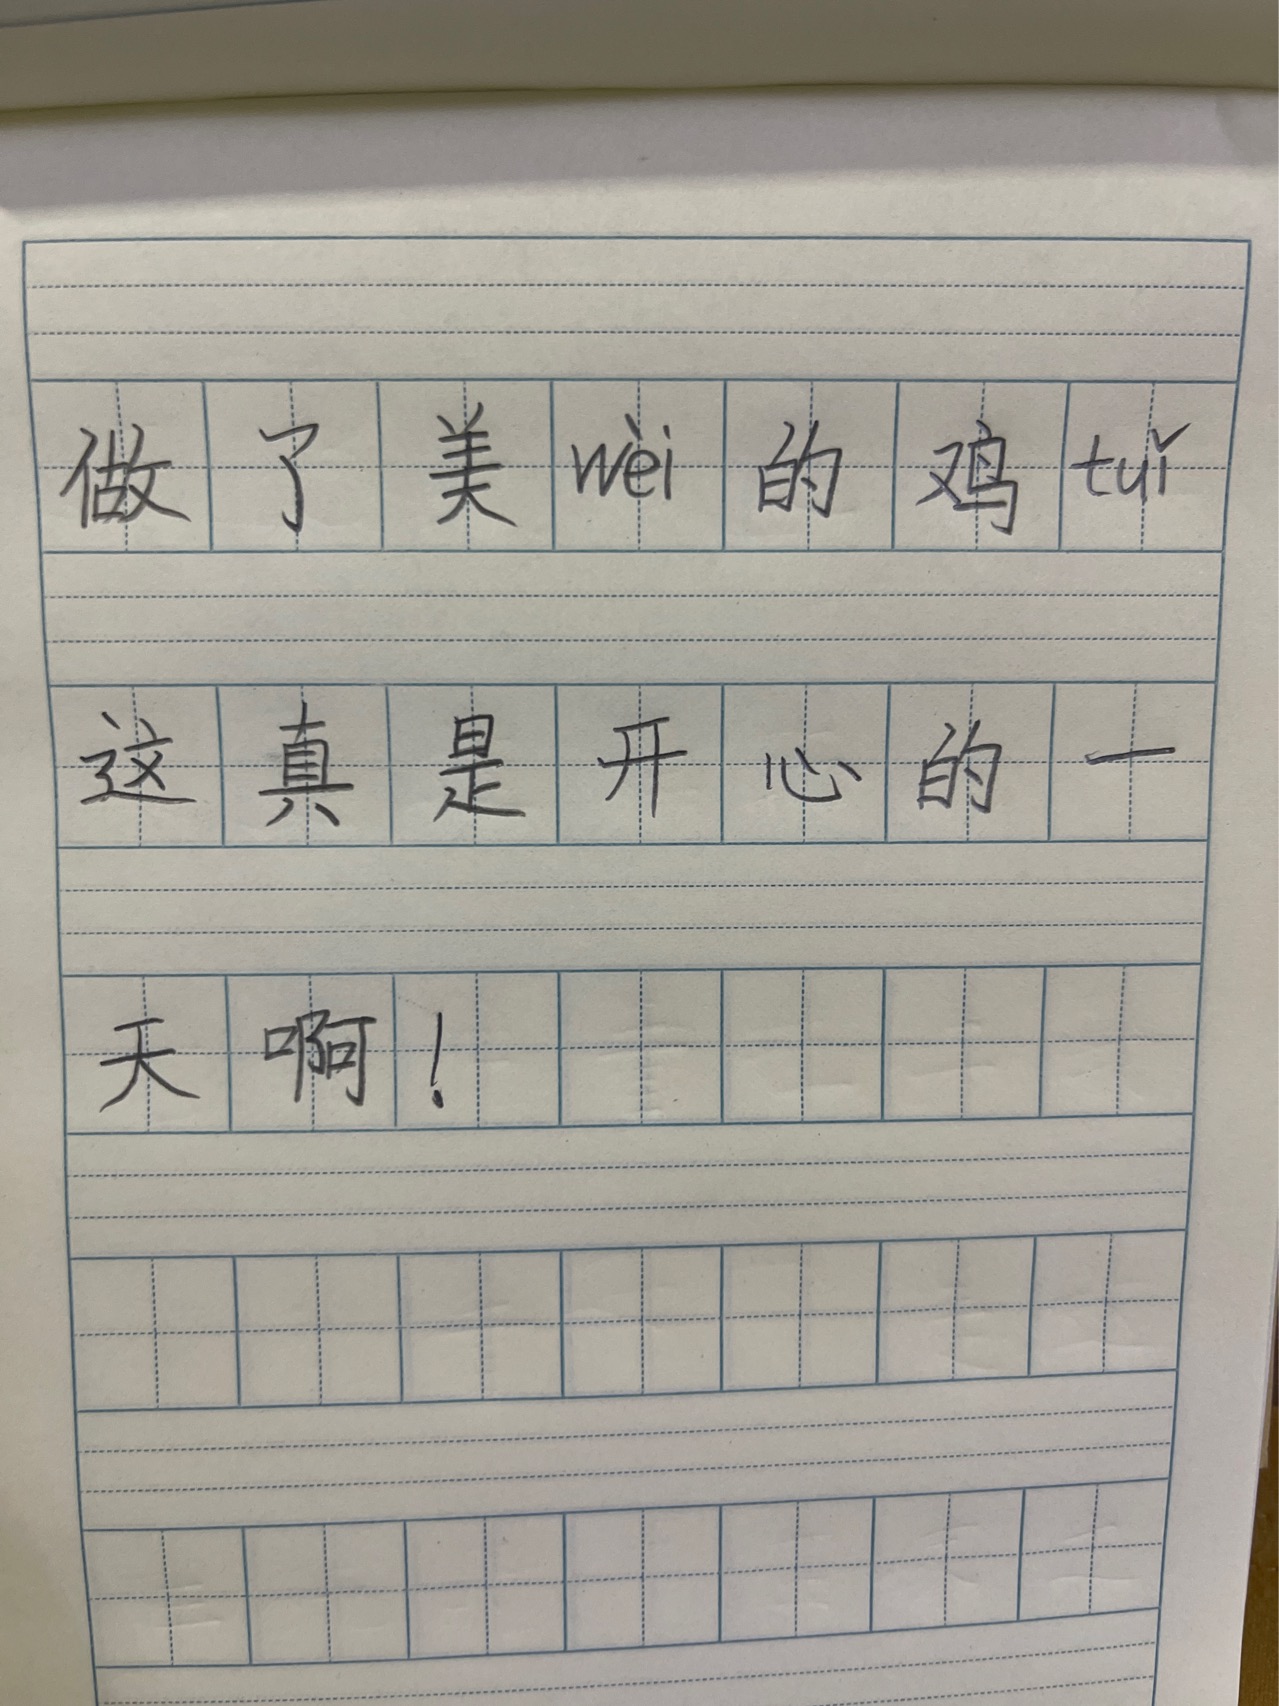 做了美wèi的鸡tuǐ
这真是开心的一
天啊！